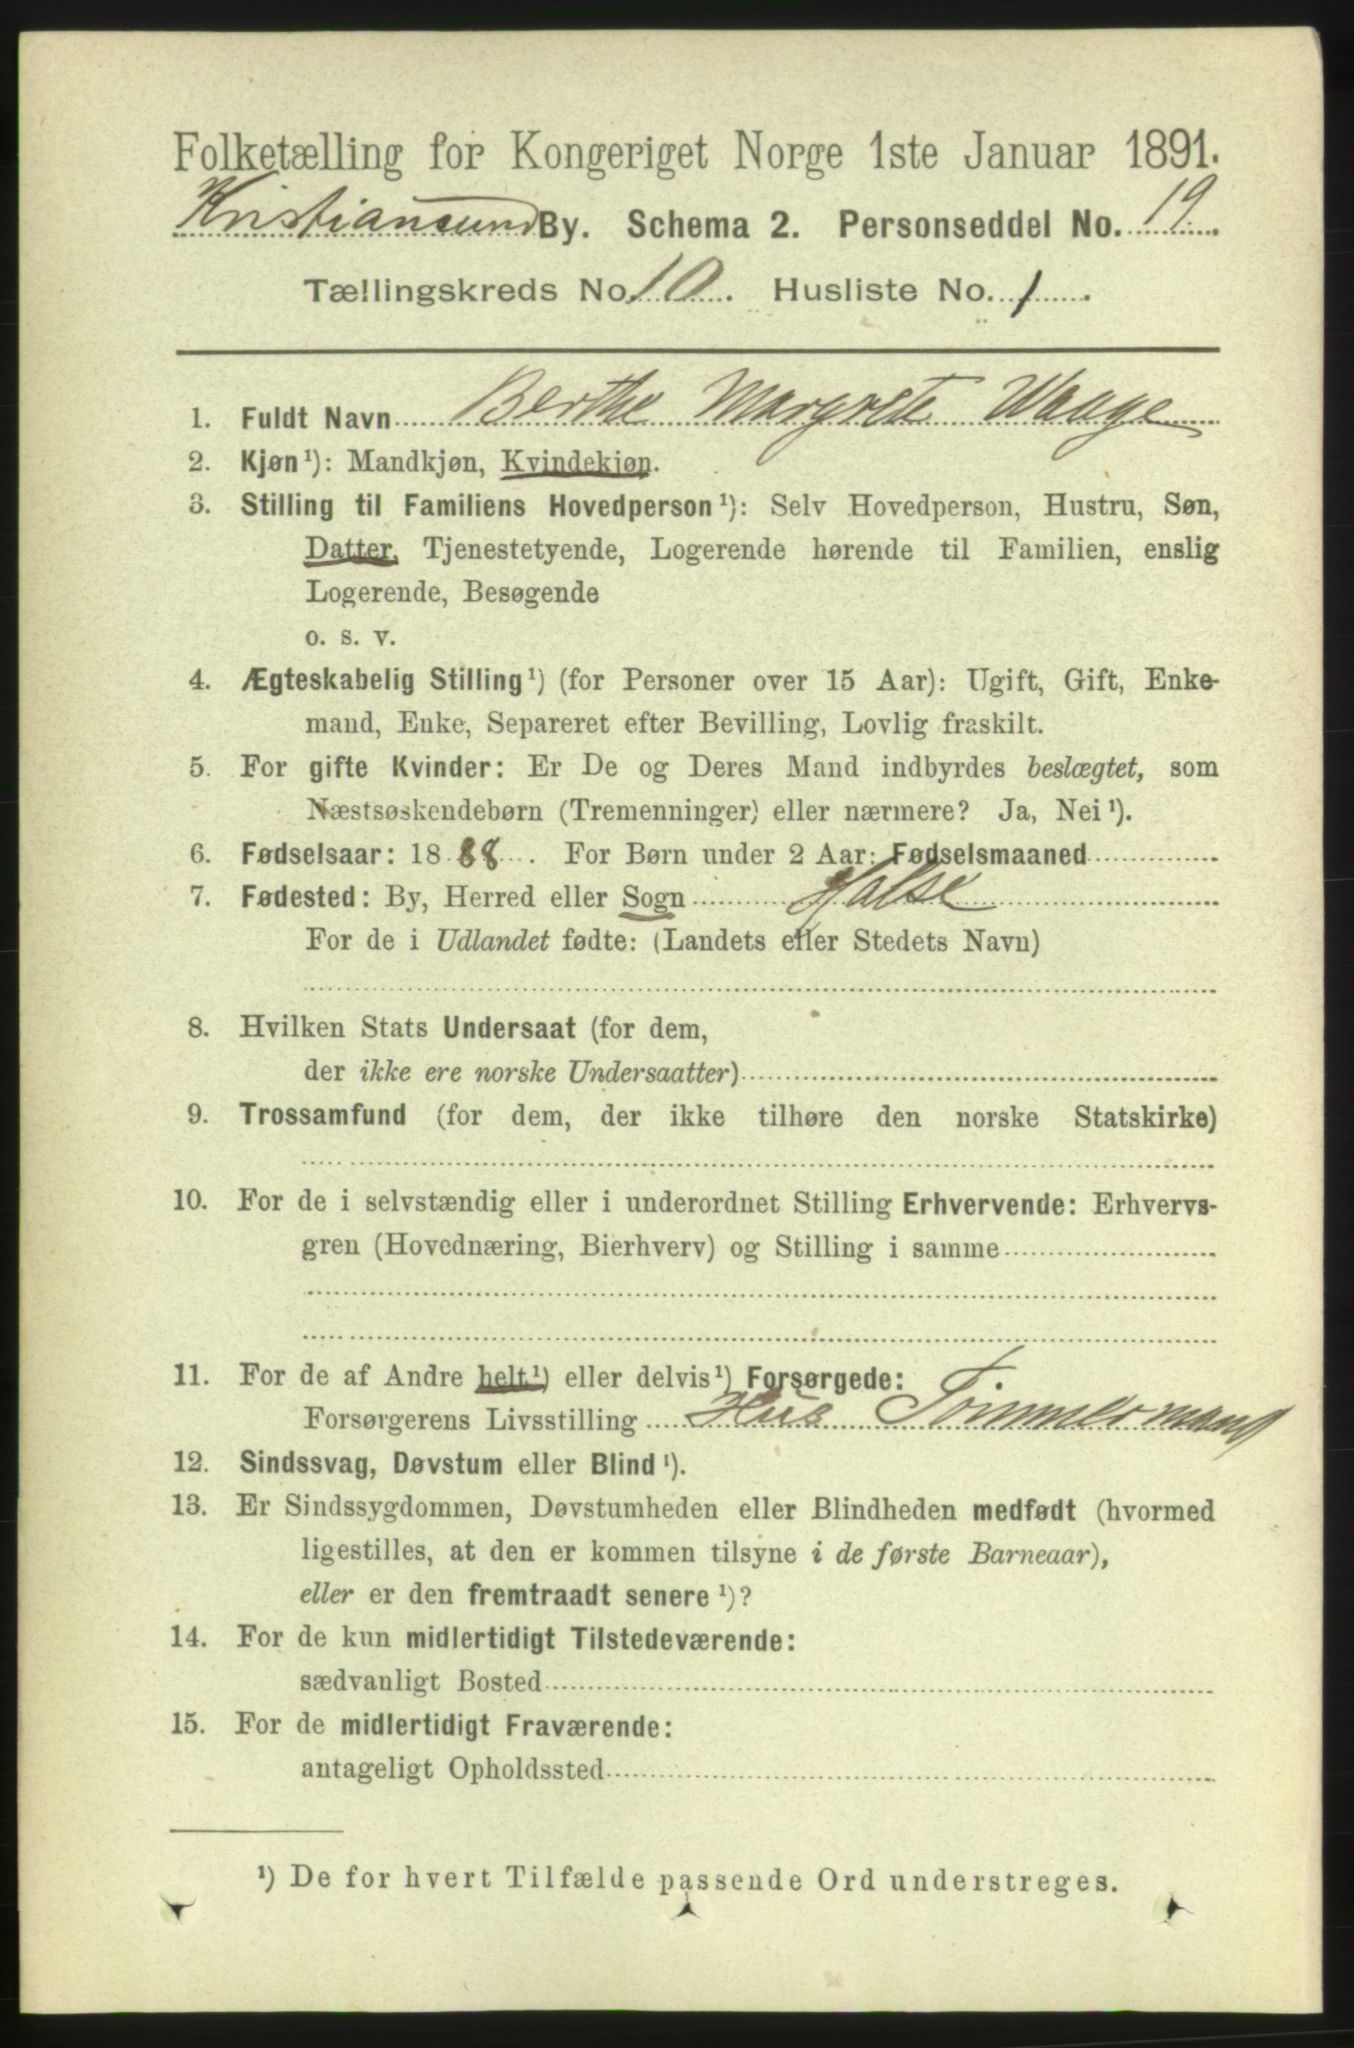 Folketælling for Kongeriget Norge 1ste Januar 1891.
Kristiansund By. Schema 2. Personseddel No. 19.
Tællingskreds No. 10. Husliste No. 1.
1. Fuldt Navn Berthe Margrete Waage
2. Kjøn¹): Mandkjøn, Kvindekjøn.
3. Stilling til Familiens Hovedperson¹): Selv Hovedperson, Hustru, Søn,
Datter, Tjenestetyende, Logerende hørende til Familien, enslig
Logerende, Besøgende
o. s. v.
4. Ægteskabelig Stilling¹) (for Personer over 15 Aar): Ugift, Gift, Enke-
mand, Enke, Separeret efter Bevilling, Lovlig fraskilt.
5. For gifte Kvinder: Er De og Deres Mand indbyrdes beslægtet, som
Næstsøskendebørn (Tremenninger) eller nærmere? Ja, Nei¹).
6. Fødselsaar: 1888. For Børn under 2 Aar: Fødselsmaaned
7. Fødested: By, Herred eller Sogn Halse
For de i Udlandet fødte: (Landets eller Stedets Navn)
8. Hvilken Stats Undersaat (for dem,
der ikke ere norske Undersaatter)
9. Trossamfund (for dem, der ikke tilhøre den norske Statskirke)
10. For de i selvstændig eller i underordnet Stilling Erhvervende: Erhvervs-
gren (Hovednæring, Bierhverv) og Stilling i samme
11. For de af Andre helt¹) eller delvis¹) Forsørgede:
Forsørgerens Livsstilling Hus Tømmermand
12. Sindssvag, Døvstum eller Blind¹).
13. Er Sindssygdommen, Døvstumheden eller Blindheden medfødt (hvormed
ligestilles, at den er kommen tilsyne i de første Barneaar),
eller er den fremtraadt senere¹)?
14. For de kun midlertidigt Tilstedeværende:
sædvanligt Bosted
15. For de midlertidigt Fraværende:
antageligt Opholdssted
¹) De for hvert Tilfælde passende Ord understreges.